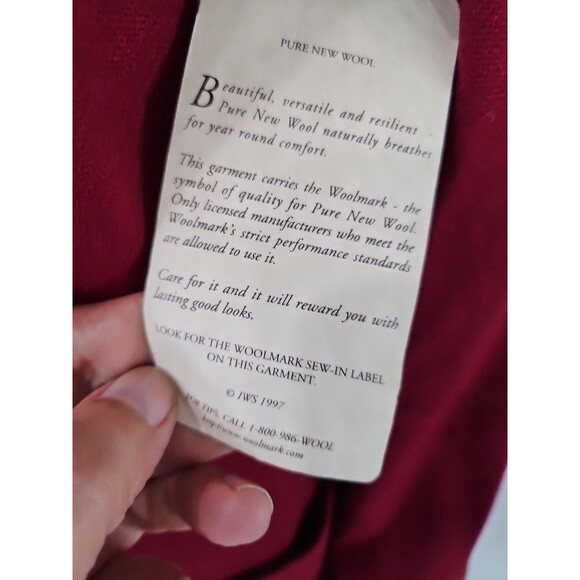 PURE NEW WOOL
Beautiful, versatile and resilient
Pure New Wool naturally breathes
for year round comfort.
This garment carries the Woolmark - the
symbol of quality for Pure New Wool.
Only licensed manufacturers who meet the
Woolmark's strict performance standards
are allowed to use it.
Care for it and it will reward you with
lasting good looks.
LOOK FOR THE WOOLMARK SEW-IN LABEL
ON THIS GARMENT.
© IWS 1997
FOR TIPS, CALL 1-800-986-WOOL
http://www.woolmark.com